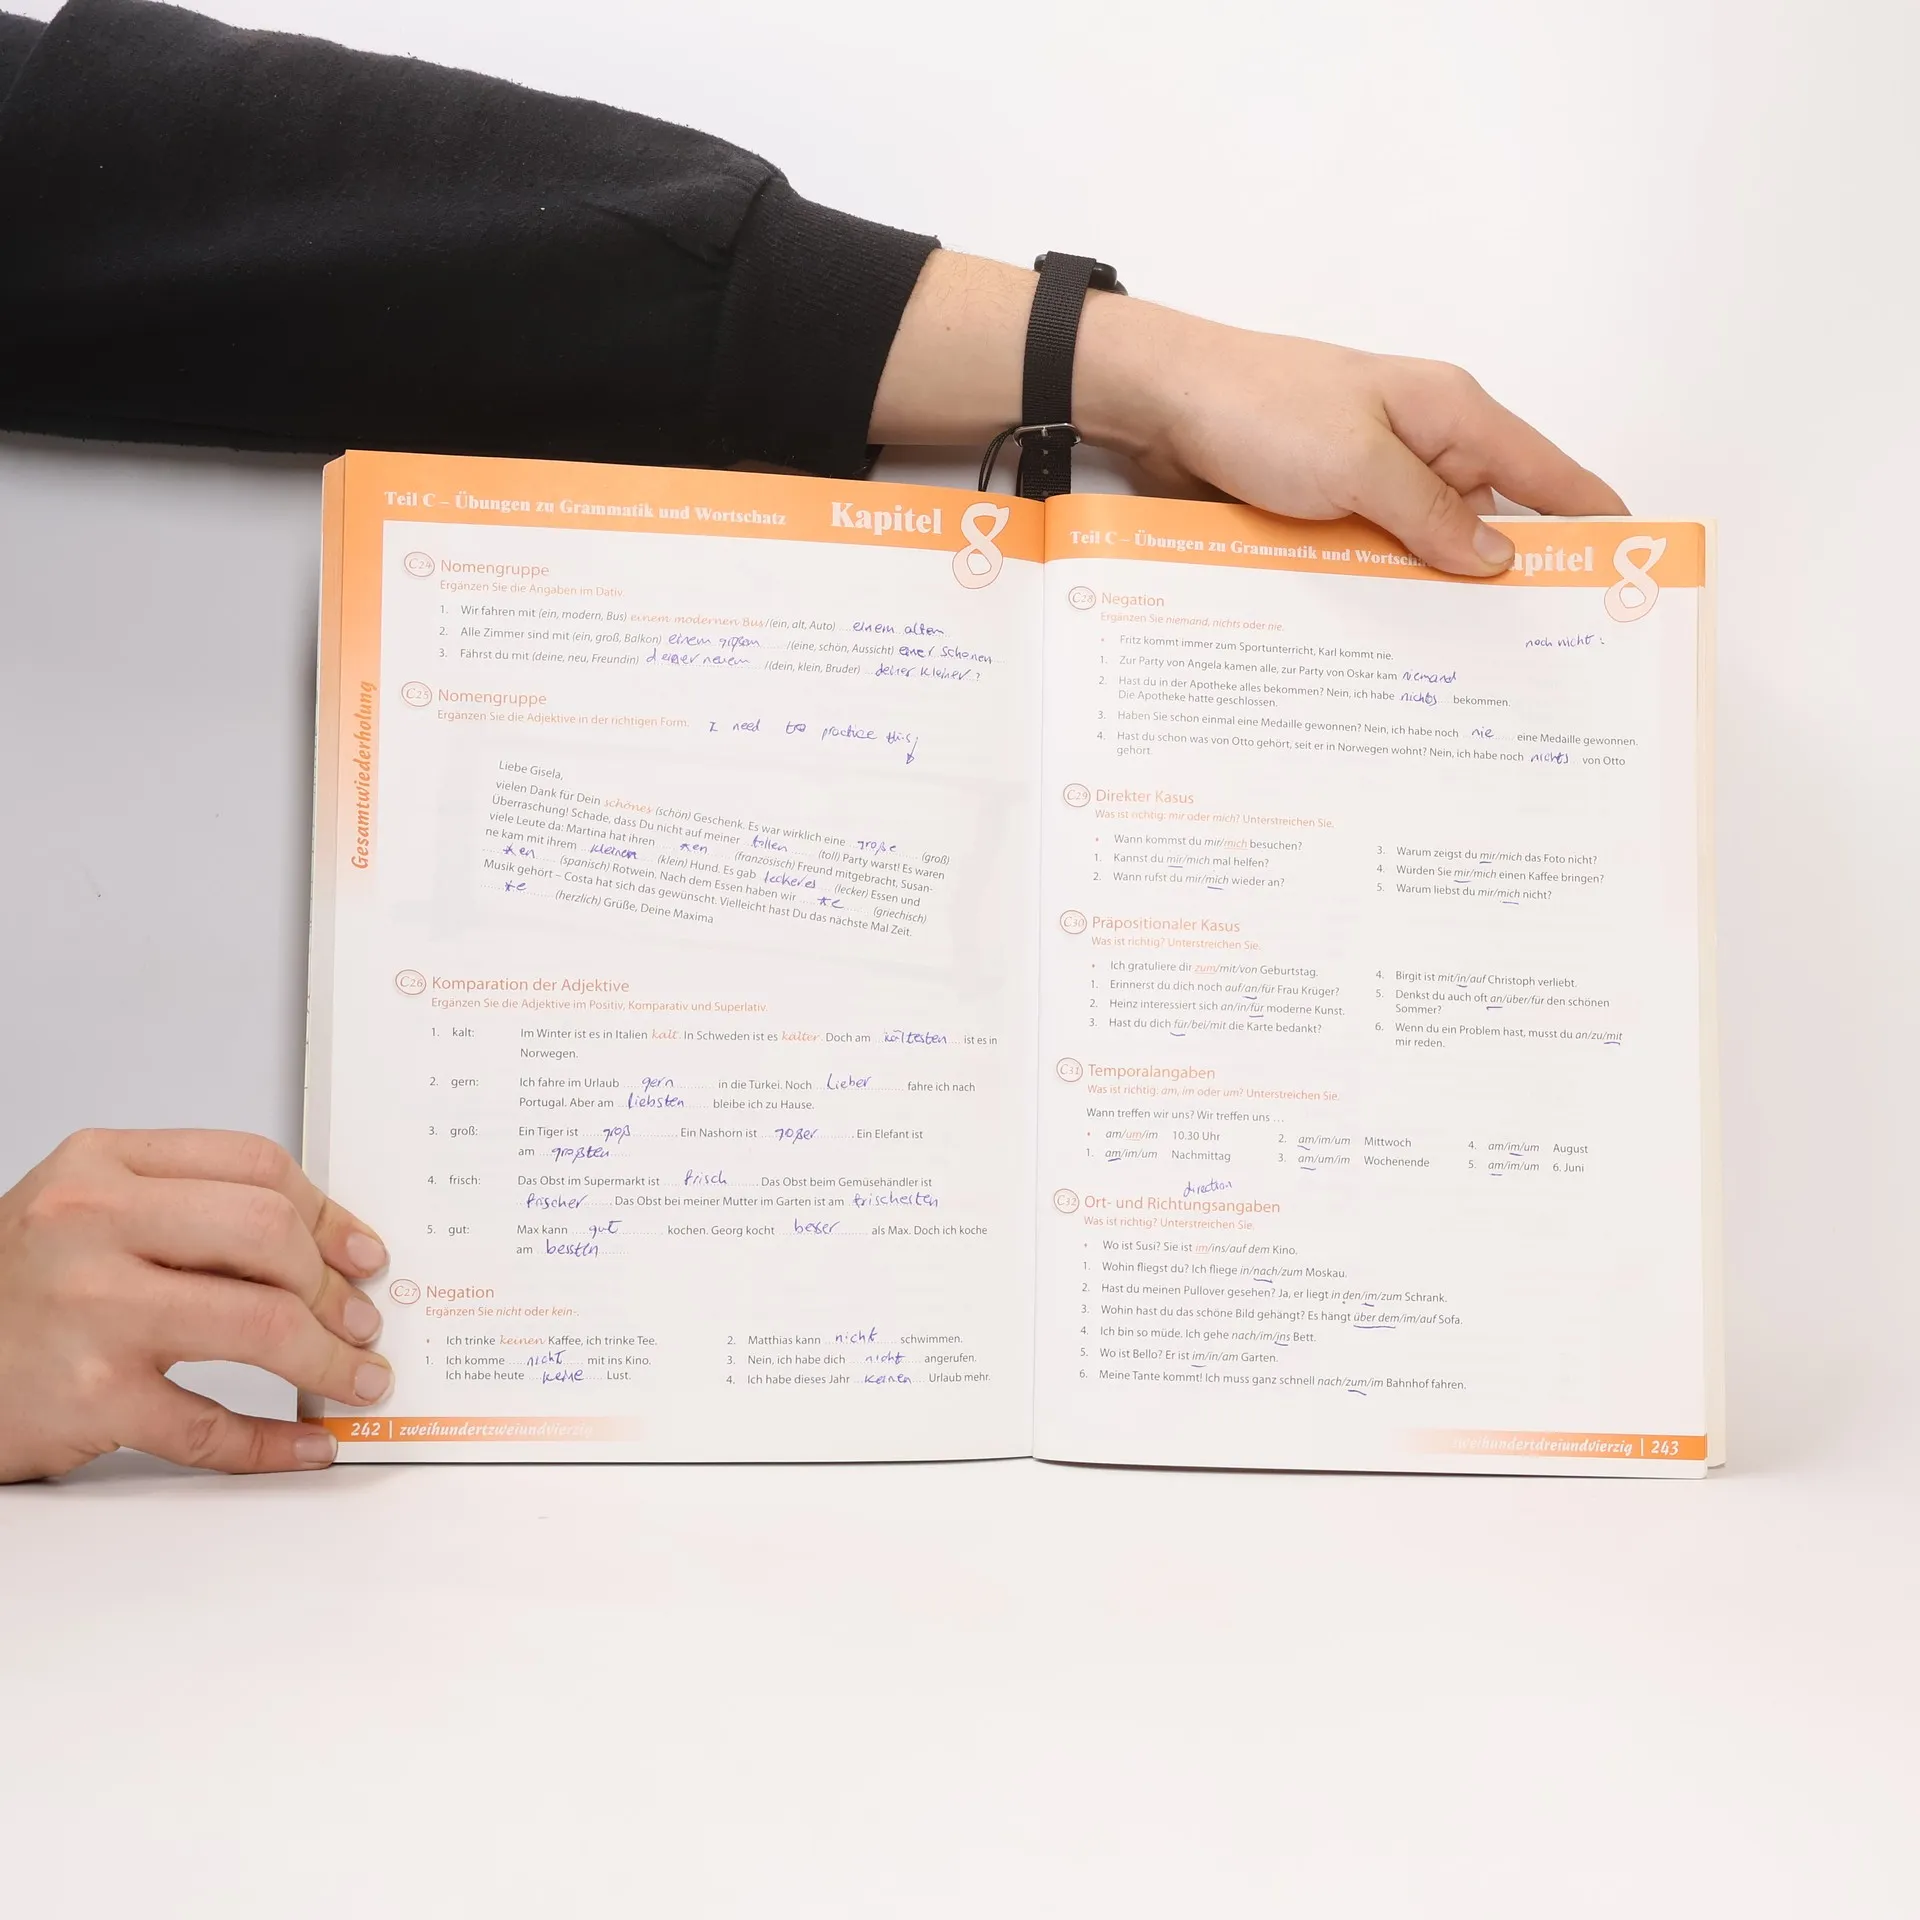 Teil C – Übungen zu Grammatik und Wortschatz Kapitel 8
Gesamtwiederholung
C24 Nomengruppe
Ergänzen Sie die Angaben im Dativ.
1. Wir fahren mit (ein, modern, Bus) einem modernen Bus/(ein, alt, Auto) einem alten
2. Alle Zimmer sind mit (ein, groß, Balkon) einem großem /(eine, schön, Aussicht) einer schönen
3. Fährst du mit (deine, neu, Freundin) deiner neuem /(dein, klein, Bruder) deiner kleiner ?
C25 Nomengruppe
Ergänzen Sie die Adjektive in der richtigen Form. I need to practice this;
Liebe Gisela,
vielen Dank für Dein schönes (schön) Geschenk. Es war wirklich eine große (groß)
Überraschung! Schade, dass Du nicht auf meiner tollen (toll) Party warst! Es waren
viele Leute da: Martina hat ihren *en (französisch) Freund mitgebracht, Susan-
ne kam mit ihrem kleinen (klein) Hund. Es gab leckeres (lecker) Essen und
*en (spanisch) Rotwein. Nach dem Essen haben wir *e (griechisch)
Musik gehört – Costa hat sich das gewünscht. Vielleicht hast Du das nächste Mal Zeit.
*e (herzlich) Grüße, Deine Maxima
C26 Komparation der Adjektive
Ergänzen Sie die Adjektive im Positiv, Komparativ und Superlativ.
1. kalt: Im Winter ist es in Italien kalt. In Schweden ist es kälter. Doch am kältesten ist es in
Norwegen.
2. gern: Ich fahre im Urlaub gern in die Türkei. Noch Lieber fahre ich nach
Portugal. Aber am liebsten bleibe ich zu Hause.
3. groß: Ein Tiger ist groß . Ein Nashorn ist . Ein Elefant ist
am großten
4. frisch: Das Obst im Supermarkt ist frisch . Das Obst beim Gemüsehändler ist
frischer . Das Obst bei meiner Mutter im Garten ist am frischesten
5. gut: Max kann gut kochen. Georg kocht besser als Max. Doch ich koche
am bessten
C27 Negation
Ergänzen Sie nicht oder kein-.
• Ich trinke keinen Kaffee, ich trinke Tee.
1. Ich komme nicht mit ins Kino.
Ich habe heute keine Lust.
2. Matthias kann nicht schwimmen.
3. Nein, ich habe dich nicht angerufen.
4. Ich habe dieses Jahr keinen Urlaub mehr.
242 | zweihundertzweiundvierzig
Teil C – Übungen zu Grammatik und Wortsch apitel 8
C28 Negation
Ergänzen Sie niemand, nichts oder nie.
noch nicht :
• Fritz kommt immer zum Sportunterricht, Karl kommt nie.
1. Zur Party von Angela kamen alle, zur Party von Oskar kam niemand
2. Hast du in der Apotheke alles bekommen? Nein, ich habe nichts bekommen.
Die Apotheke hatte geschlossen.
3. Haben Sie schon einmal eine Medaille gewonnen? Nein, ich habe noch nie eine Medaille gewonnen.
4. Hast du schon was von Otto gehört, seit er in Norwegen wohnt? Nein, ich habe noch nichts von Otto
gehört.
C29 Direkter Kasus
Was ist richtig: mir oder mich? Unterstreichen Sie.
• Wann kommst du mir/mich besuchen?
1. Kannst du mir/mich mal helfen?
2. Wann rufst du mir/mich wieder an?
3. Warum zeigst du mir/mich das Foto nicht?
4. Würden Sie mir/mich einen Kaffee bringen?
5. Warum liebst du mir/mich nicht?
C30 Präpositionaler Kasus
Was ist richtig? Unterstreichen Sie.
• Ich gratuliere dir zum/mit/von Geburtstag.
1. Erinnerst du dich noch auf/an/für Frau Krüger?
2. Heinz interessiert sich an/in/für moderne Kunst.
3. Hast du dich für/bei/mit die Karte bedankt?
4. Birgit ist mit/in/auf Christoph verliebt.
5. Denkst du auch oft an/über/für den schönen
Sommer?
6. Wenn du ein Problem hast, musst du an/zu/mit
mir reden.
C31 Temporalangaben
Was ist richtig: am, im oder um? Unterstreichen Sie.
Wann treffen wir uns? Wir treffen uns ...
• am/um/im 10.30 Uhr
1. am/im/um Nachmittag
2. am/im/um Mittwoch
3. am/um/im Wochenende
4. am/im/um August
5. am/im/um 6. Juni
direction
C32 Ort- und Richtungsangaben
Was ist richtig? Unterstreichen Sie.
• Wo ist Susi? Sie ist im/ins/auf dem Kino.
1. Wohin fliegst du? Ich fliege in/nach/zum Moskau.
2. Hast du meinen Pullover gesehen? Ja, er liegt in den/im/zum Schrank.
3. Wohin hast du das schöne Bild gehängt? Es hängt über dem/im/auf Sofa.
4. Ich bin so müde. Ich gehe nach/im/ins Bett.
5. Wo ist Bello? Er ist im/in/am Garten.
6. Meine Tante kommt! Ich muss ganz schnell nach/zum/im Bahnhof fahren.
zweihundertdreiundvierzig | 243